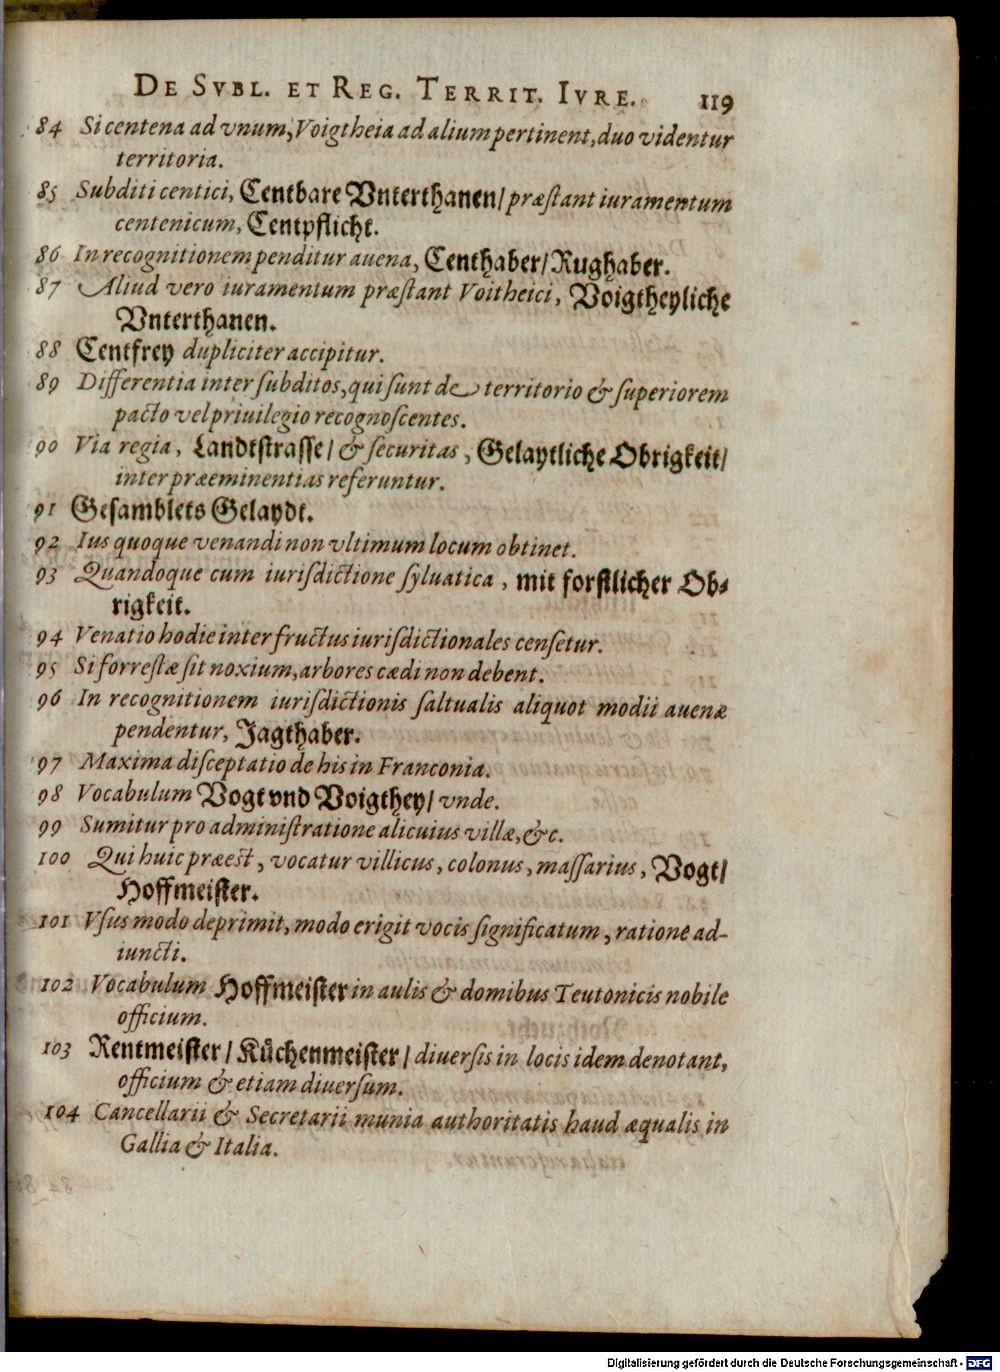 DE SVBL. ET REG. TERRIT. IVRE. 119
84 Si centena ad vnum, Voigtheia ad alium pertinent, duo videntur
territoria.
85 Subditi centici, Centbare Vnterthanen/ præstant iuramentum
centenicum, Centpflicht.
86 In recognitionem penditur auena, Centhaber/ Rughaber.
87 Aliud vero iuramentum præstant Voitheici, Voigtheyliche
Vnterthanen.
88 Centfrey dupliciter accipitur.
89 Differentia inter subditos, qui sunt de territorio & superiorem
pacto vel priuilegio recognoscentes.
90 Via regia, Landtstrasse/ & securitas, Gelaytliche Obrigkeit/
inter præeminentias referuntur.
91 Gesamblets Gelaydt.
92 Ius quoque venandi non vltimum locum obtinet.
93 Quandoque cum iurisdictione syluatica, mit forstlicher Ob-
rigkeit.
94 Venatio hodie inter fructus iurisdictionales censetur.
95 Si forrestæ sit noxium, arbores cædi non debent.
96 In recognitionem iurisdictionis saltualis aliquot modii auenæ
pendentur, Jagthaber.
97 Maxima disceptatio de his in Franconia.
98 Vocabulum Vogt vnd Voigthey/ vnde.
99 Sumitur pro administratione alicuius villæ, &c.
100 Qui huic præest, vocatur villicus, colonus, massarius, Vogt/
Hoffmeister.
101 Vsus modo deprimit, modo erigit vocis significatum, ratione ad-
iuncti.
102 Vocabulum Hoffmeister in aulis & domibus Teutonicis nobile
officium.
103 Rentmeister/ Küchenmeister/ diuersis in locis idem denotant,
officium & etiam diuersum.
104 Cancellarii & Secretarii munia authoritatis haud æqualis in
Gallia & Italia.
Digitalisierung gefördert durch die Deutsche Forschungsgemeinschaft - DFG